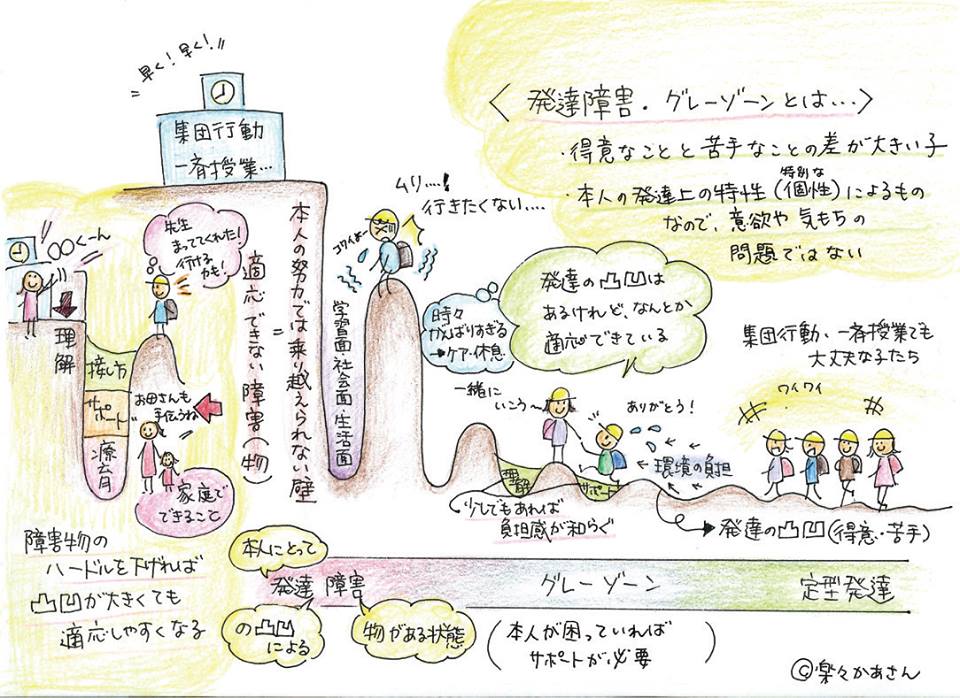 〃早く!早く!〃
集団行動
一斉授業…
〈発達障害・グレーゾーンとは…〉
・得意なことと苦手なことの差が大きい子
・本人の発達上の特性(特別な個性)によるもの
なので、意欲や気もちの
問題ではない
ムリ….!
行きたくない….
コワイよ〜
○○くーん
先生
まっててくれた!
行ける
かも!
理解
接し方
サポート
療育
お母さんも
手伝うね
家庭で
できること
適応できない障害(物)
=
本人の努力では乗り越えられない壁
学習面・社会面・生活面
時々
がんばりすぎる
→ケア・休息
発達の凸凹は
あるけれど、なんとか
適応できている
一緒に
いこう〜
ありがとう!
理解
サポート
環境の負担
少しでもあれば
負担感が和らぐ
集団行動、一斉授業でも
大丈夫な子たち
ワイワイ
発達の凸凹(得意・苦手)
障害物の
ハードルを下げれば
凸凹が大きくても
適応しやすくなる
本人にとって
発達障害
グレーゾーン
定型発達
の凸凹
による
物がある状態
(本人が困っていれば
サポートが必要)
©楽々かあさん